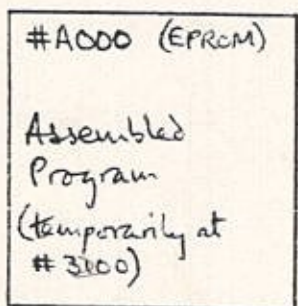 #A000 (EPROM)
Assembled
Program
(temporarily at
#3100)